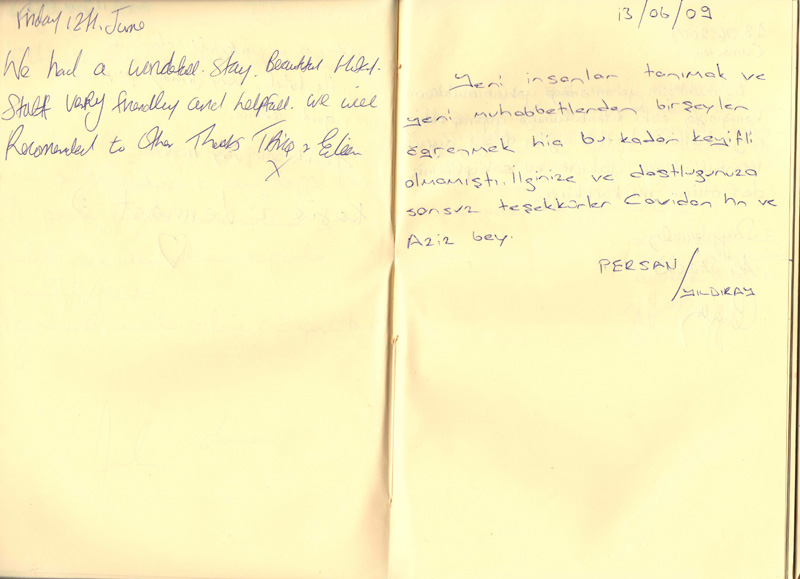 Friday 12th. June
We had a wonderfull. Stay. Beautiful Hotel.
Staff very friendley and helpfull. we will
Recomended to Other Thanks & Eileen
X
13/06/09
Yeni insanlar tanımak ve
yeni muhabbetlerden birşeyler
öğrenmek hiç bu kadar keyifli
olmamıştı. İlginize ve dostluğunuza
sonsuz teşekkürler Cavidan hn ve
Aziz bey.
PERSAN/
YILDIRAY